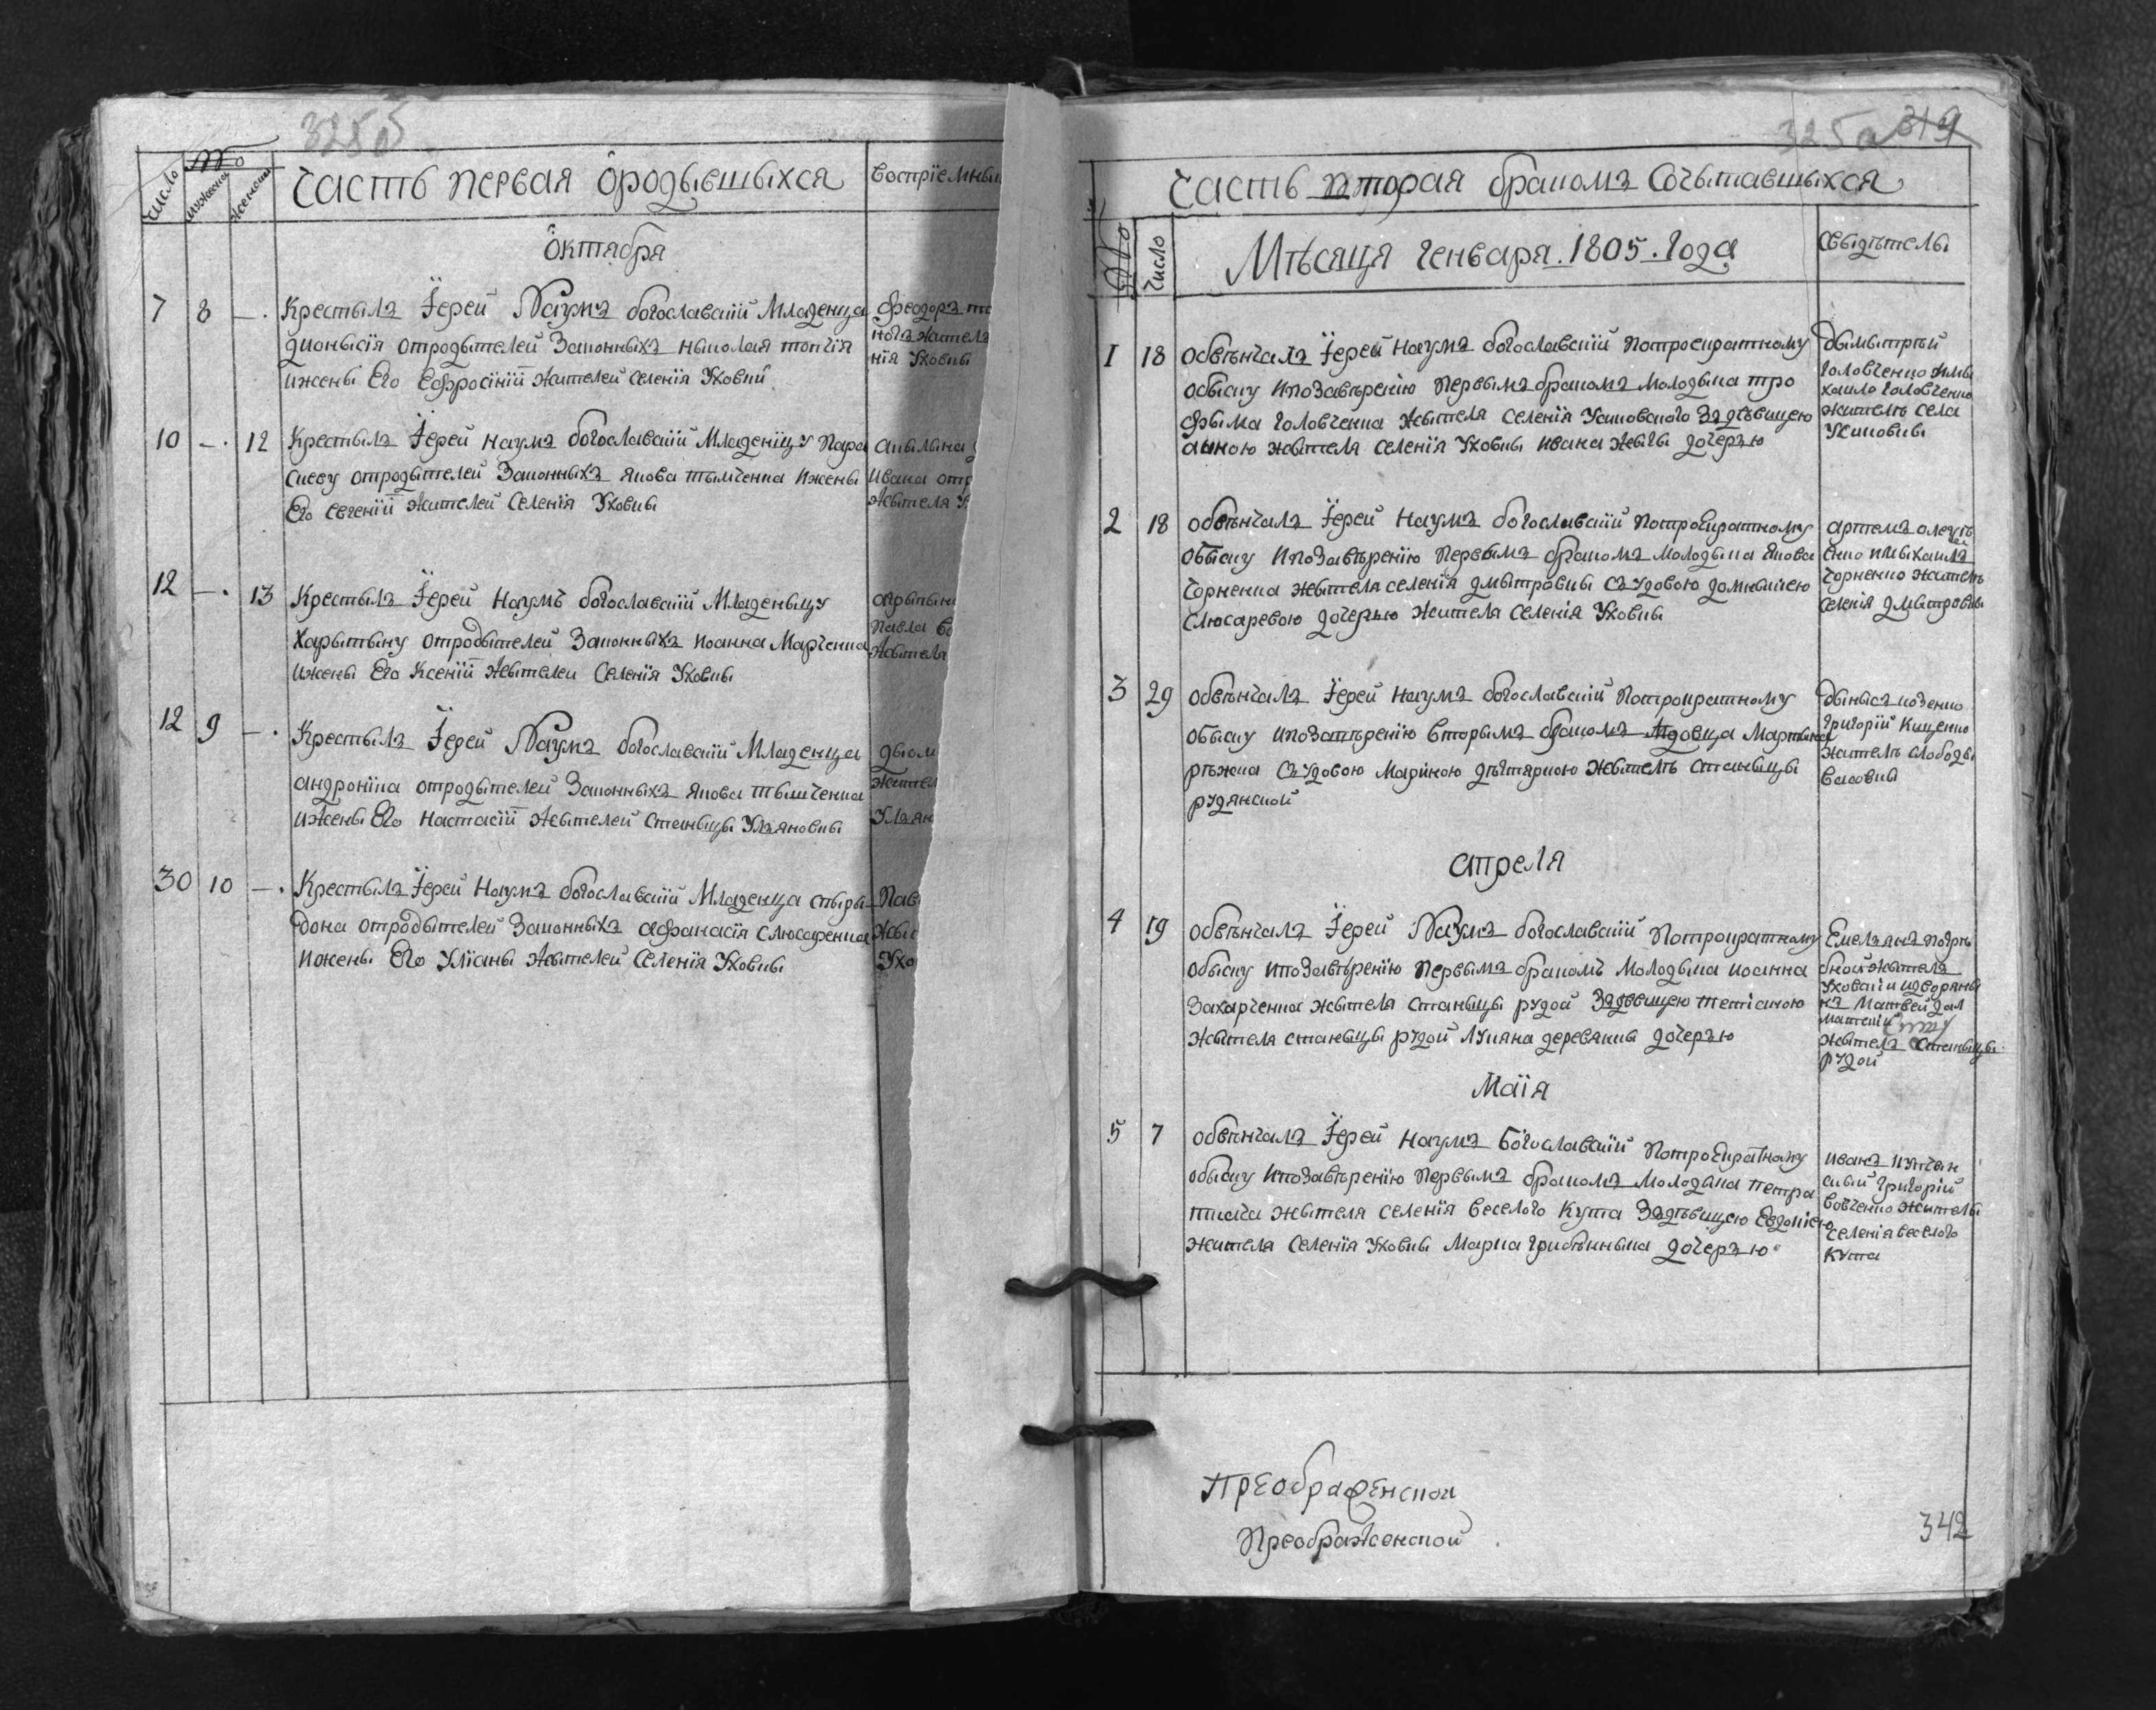 325б
число
№
мужеска
женска
Часть первая ородывшыхся
Воспрїемныи
Октября
7 8 —. Крестылъ Їерей Наумъ богославскїй Младенца
дионысїя отродытелей Законныхъ Ныколая топчїя
ижены Его Ефросїнїй жителей селенїя Уховки
Феодоръ
жителя
нїя Уховкы
10 —. 12 Крестылъ Їерей Наумъ богославскїй Младенїцу пара
скеву отродытелей Законныхъ Якова тымченка ижены
Его Евгенїй жителей Селенїя Уховкы
Акылына
Ивана
жытеля
12 —. 13 Крестылъ Їерей Наумъ богославскїй Младеныцу
Харытыну отродытелей Законныхъ Иоанна Марченка
ижены Его Ксенїй жытелей Селенїя Уховкы
Павла
жытеля
12 9 —. Крестылъ Їерей Наумъ богославскїй Младенца
андронїка отродытелей Законныхъ Якова тымченка
ижены Его Настасїй жытелей станыцы Улъяновкы
жител
Улъян
30 10 —. Крестылъ Їерей Наумъ богославскїй Младенца спыры
дона отродытелей Законныхъ афанасїя слюсаренка
ижены Его Улїаны жытелей Селенїя Уховкы
Пав
Ухо
325а 319
Часть вторая бракомъ Сочытавшыхся
№
Число
Мѣсяця Генваря. 1805. Года
свыдѣтелы
1 18 обвѣнчалъ Їерей Наумъ богославскїй Потроекратному
обыску ипозавѣренїю Первымъ бракомъ Молодыка тро
фыма Головченка жытеля селенїя Усиковского Задѣвицею
анною жытеля селенїя Уховкы ивана дочеръю
дымытрїй
Головченко имы
хаило Головченко
жителѣ села
Усиковкы
2 18 обвѣнчалъ Їерей Наумъ богославскїй Потроекратному
обыску ипозавѣренїю Первымъ бракомъ Молодыка Якова
Чорненка жытеля селенїя дмытровкы Съ удовою домныкїею
Слюсаревою дочерью жителя селенїя Уховкы
артемъ
имыхаилъ
Чорненко жителѣ
селенїя дмытровкы
3 29 обвѣнчалъ Їерей Наумъ богославскїй Потрократному
обыску ипозавѣренїю вторымъ бракомъ вдовца Мартына
рѣжка Съ удовою Мариною дѣгтярною жытелѣ станыцы
рудянской
дынысъ козенко
Григорїй Куценко
жителѣ слободы
Басовкы
апреля
4 19 обвѣнчалъ Їерей Наумъ богославскїй Потрократному
обыску ипозавѣренїю Первымъ бракомъ Молодыка иоанна
Захарченка жытеля станыцы рудой Задѣвицею тетїаною
жытеля станыцы рудой Лукяна деревянкы дочеръю
Емелъянъ
жытель
Уховскїй идворяны
нъ Матвей
жытель станыцы
рудой
Маїя
5 7 обвѣнчалъ Їерей Наумъ Богославскїй Потроекратному
обыску ипозавѣренїю Первымъ бракомъ Молодика петра
ткача жытеля селенїя Веселого Кута Задѣвицею Евдокїею
жителя Селенїя Уховкы Марка дочеръю
иванъ
Григорїй
Вовченко жителы
селенїя веселого
Кута
Преображенской
Преображенской
342